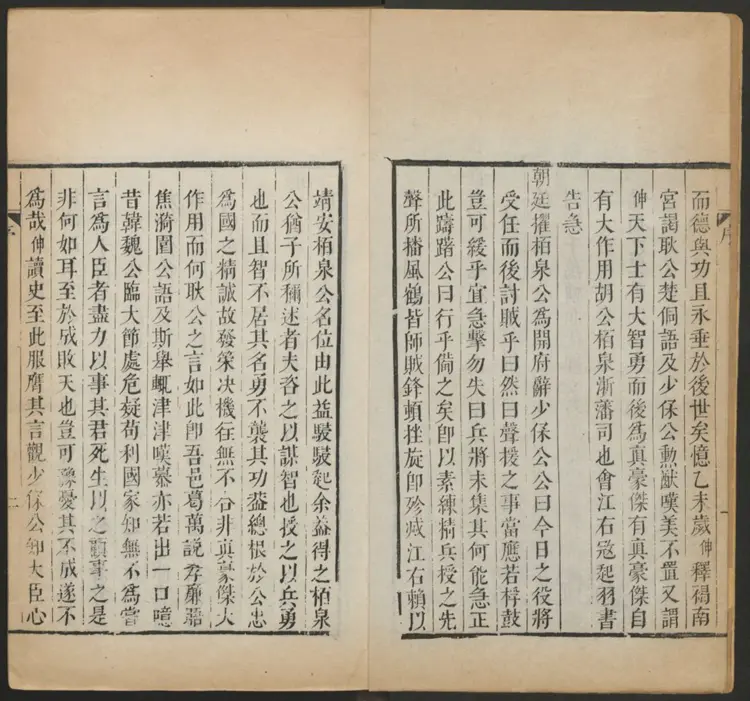 而德與功且永垂於後世矣憶乙未歲伸釋褐南
宮謁耿公楚侗語及少保公勲猷嘆美不置又謂
伸天下士有大智勇而後為真豪傑有真豪傑自
有大作用胡公栢泉浙藩司也會江右寇起羽書
告急
朝廷擢栢泉公為開府辭少保公公曰今日之役將
受任而後討賊乎曰然曰聲援之事當應若桴鼓
豈可緩乎宜急擊勿失曰兵將未集其何能急正
此躊躇公曰行乎備之矣卽以素練精兵授之先
聲所播風鶴皆師賊鋒頓挫旋卽殄滅江右賴以
序
一
靖安栢泉公名位由此益駸駸起余益得之栢泉
公猶子所稱述者夫咨之以謀智也授之以兵勇
也而且智不居其名勇不襲其功葢總根於公忠
為國之精誠故發策决機往無不合非真豪傑大
作用而何耿公之言如此卽吾邑葛萬說孝廉語
焦漪園公語及斯舉輒津津嘆慕亦若出一口噫
昔韓魏公臨大節處危疑苟利國家知無不為嘗
言為人臣者盡力以事其君死生以之顧事之是
非何如耳至於成敗天也豈可豫憂其不成遂不
為哉伸讀史至此服膺其言觀少保公知大臣心
序
二